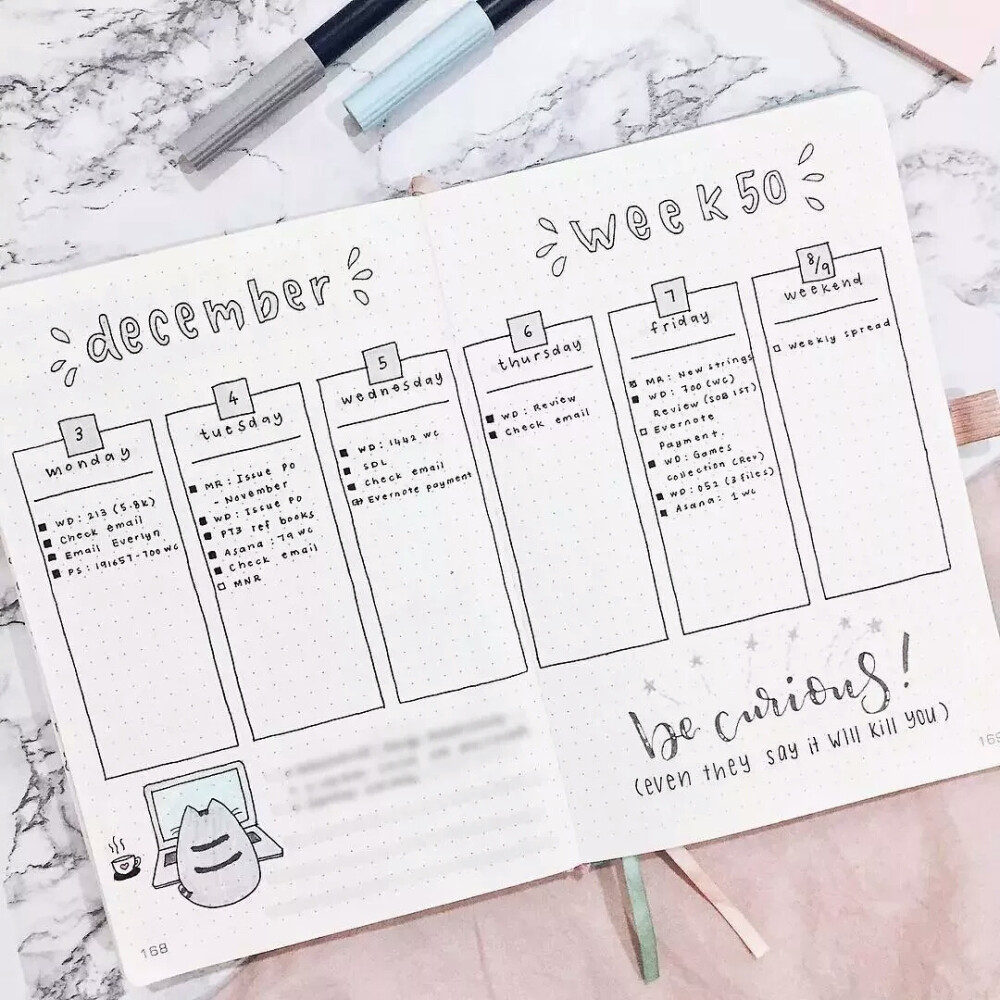 december
week 50
3
monday
WD: 213 (5.8k)
Check email
Email Everlyn
PS: 191657-700 WC
4
tuesday
MR: Issue PO
- November
WD: Issue PO
PT3 ref books
Asana: 79 WC
Check email
MNR
5
wednesday
WD: 1442 WC
SDL
Check email
Evernote payment
6
thursday
WD: Review
Check email
7
friday
MR: New Strings
WD: 700 (WC)
Review (SOB IST)
Evernote
Payment.
WD: Games
collection (Rev)
WD: 052 (3 files)
Asana: 1 WC
8/9
weekend
weekly spread
be curious!
(even they say it will kill you)
168
169